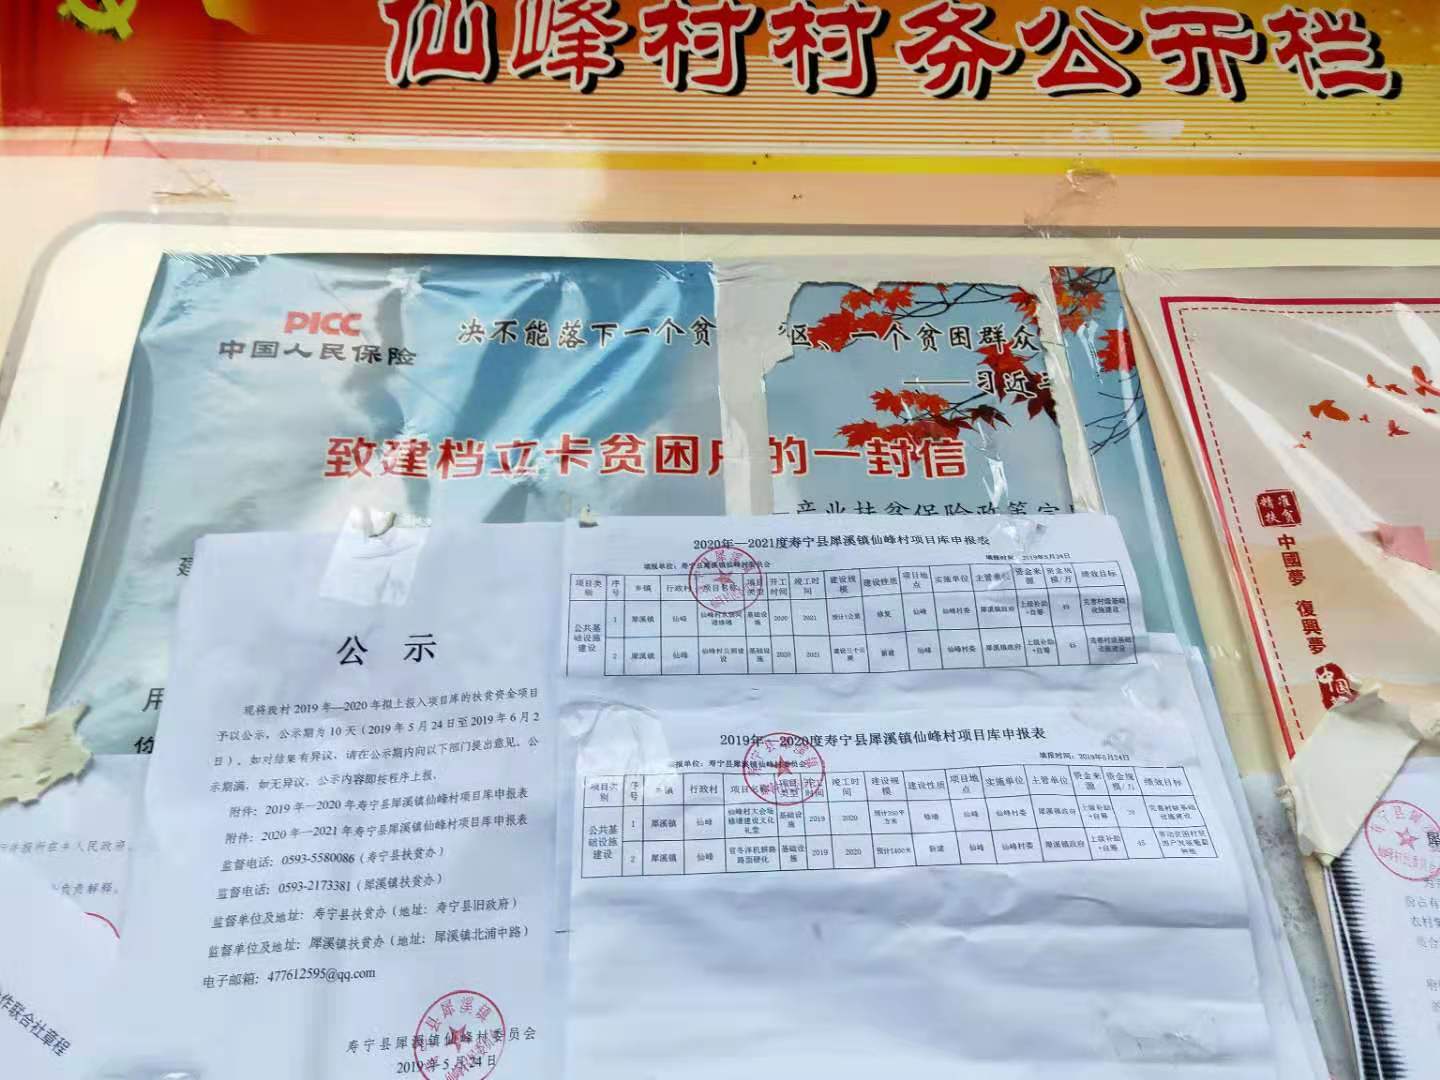 仙峰村村务公开栏
PICC
中国人民保险
决不能落下一个贫
区、一个贫困群众
——习近
致建档立卡贫困户的一封信
产业扶贫保险政策
精准扶贫
中國夢 復興夢
公 示
现将我村 2019 年—2020 年拟上报入项目库的扶贫资金项目
予以公示，公示期为 10 天（2019 年 5 月 24 日至 2019 年 6 月 2
日）。如对结果有异议，请在公示期内向以下部门提出意见。公
示期满，如无异议，公示内容即按程序上报。
附件：2019 年—2020 年寿宁县犀溪镇仙峰村项目库申报表
附件：2020 年—2021 年寿宁县犀溪镇仙峰村项目库申报表
监督电话：0593-5580086（寿宁县扶贫办）
监督电话：0593-2173381（犀溪镇扶贫办）
监督单位及地址：寿宁县扶贫办（地址：寿宁县旧政府）
监督单位及地址：犀溪镇扶贫办（地址：犀溪镇北浦中路）
电子邮箱：477612595@qq.com
寿宁县犀溪镇仙峰村委员会
2019 年 5 月 24 日
2020年—2021度寿宁县犀溪镇仙峰村项目库申报表
填报单位：寿宁县犀溪镇仙峰村委员会 填报时间：2019年5月24日
项目类别 序号 乡镇 行政村 项目名称 项目类型 开工时间 竣工时间 建设规模 建设性质 项目地点 实施单位 主管单位 资金来源 资金规模/万 绩效目标
公共基础设施建设
1 犀溪镇 仙峰 基础设施 2020 2021 预计1公里 修复 仙峰 仙峰村委 犀溪镇政府 上级补助+自筹 完善村级基础设施建设
2 犀溪镇 仙峰 仙峰村公厕建设 基础设施 2020 2021 新建 仙峰 仙峰村委 犀溪镇政府 上级补助+自筹 45 完善村级基础设施建设
2019年—2020度寿宁县犀溪镇仙峰村项目库申报表
填报单位：寿宁县犀溪镇仙峰村委员会 填报时间：2019年5月24日
项目类别 序号 乡镇 行政村 项目名称 项目类型 开工时间 竣工时间 建设规模 建设性质 项目地点 实施单位 主管单位 资金来源 资金规模/万 绩效目标
公共基础设施建设
1 犀溪镇 仙峰 仙峰村大会场修缮建设文化礼堂 基础设施 2019 2020 预计350平方米 修缮 仙峰 仙峰村委 犀溪镇政府 上级补助+自筹 完善村级基础设施建设
2 犀溪镇 仙峰 基础设施 2019 2020 预计1400米 新建 仙峰 仙峰村委 犀溪镇政府 上级补助+自筹 45
作联合社章程